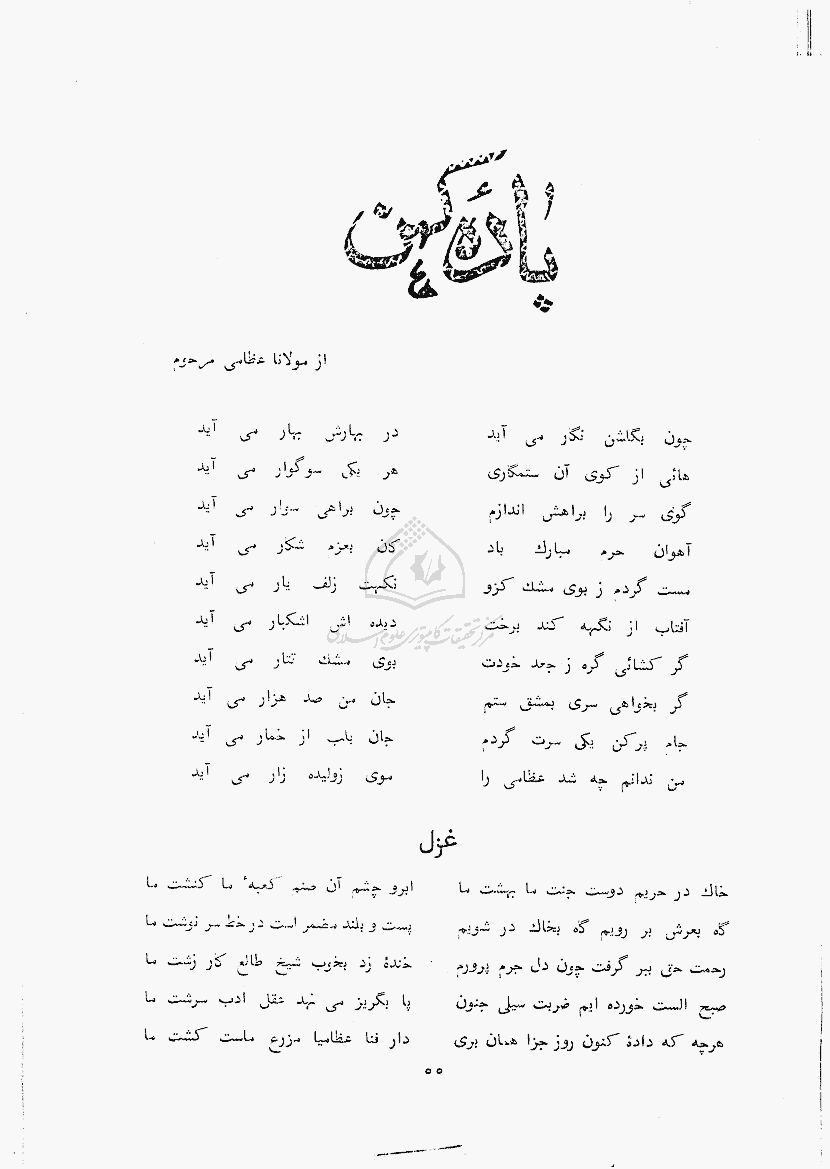 پارۂ کہن
از مولانا عظامی مرحوم
چون بگلشن نگار می آید در بہارش بہار می آید
هائی از کوی آن ستمگاری هر یکی سوگوار می آید
گوی سر را براهش اندازم چون براهی سوار می آید
آهوان حرم مبارك باد کان بعزم شکار می آید
مست گردم ز بوی مشك کزو نکہت زلف یار می آید
آفتاب از نگہہ کند برخت دیدہ اش اشکبار می آید
گر کشائی گرہ ز جعد خودت بوی مشك تتار می آید
گر بخواهی سری بمشق ستم جان من صد هزار می آید
جام پرکن یکی سرت گردم جان بلب از خمار می آید
من ندانم چہ شد عظامی را موی ژولیدہ زار می آید
غزل
خاك در حریم دوست جنت ما بہشت ما ابرو چشم آن صنم کعبہٴ ما کنشت ما
گاہ بعرش بر رویم گاہ بخاك در شویم پست و بلند مضمر است در خط سر نوشت ما
رحمت حق ببر گرفت چون دل جرم پرورم خندۂ زد بخوب شیخ طالع کار زشت ما
صبح الست خوردہ ایم ضربت سیلی جنون پا بگریز می نہد عقل ادب سرشت ما
هرچہ کہ دادۂ کنون روز جزا همان بری دار فنا عظامیا مزرع ماست کشت ما
مرکز تحقیقات کامپیوتری علوم اسلامی